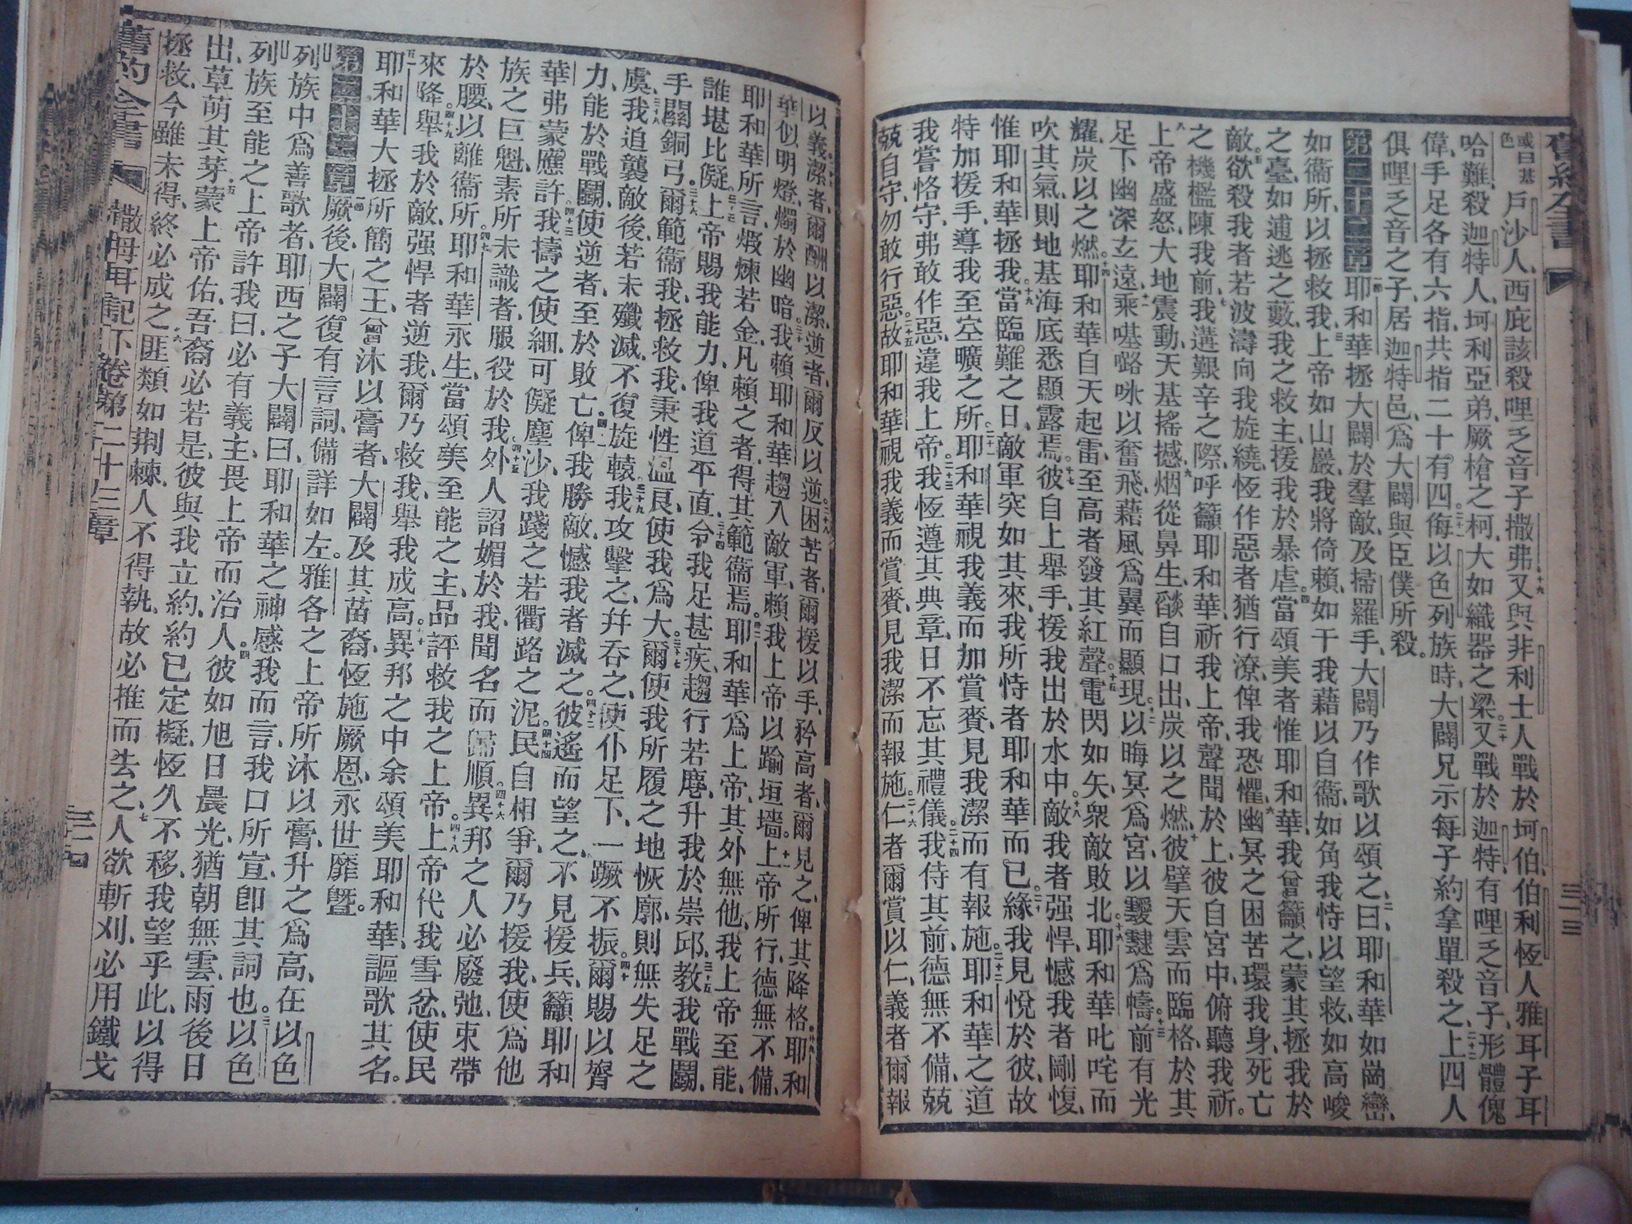 戶沙人西庇該殺哩乏音子撒弗又與非利士人戰於坷伯伯利恆人雅耳子耳
哈難殺迦特人坷利亞弟厥槍之柯大如織器之梁又戰於迦特有哩乏音子形體傀
偉手足各有六指共指二十有四侮以色列族時大闢兄示每子約拿單殺之上四人
俱哩乏音之子居迦特邑爲大闢與臣僕所殺
第二十二章耶和華拯大闢於羣敵及掃羅手大闢乃作歌以頌之曰耶和華如崗巒
如衞所以拯救我上帝如山巖我將倚賴如干我藉以自衞如角我恃以望救如高峻
之臺如逋逃之藪我之救主援我於暴虐當頌美者惟耶和華我曾籲之蒙其拯我於
敵欲殺我者若波濤向我旋繞恆作惡者猶行潦俾我恐懼幽冥之困苦環我身死亡
之機檻陳我前我遘艱辛之際呼籲耶和華祈我上帝聲聞於上彼自宮中俯聽我祈
上帝盛怒大地震動天基搖撼烟從鼻生燄自口出炭以之燃彼擘天雲而臨格於其
足下幽深玄遠乘㗔𡀔咏以奮飛藉風爲翼而顯現以晦冥爲宮以靉靆爲幬前有光
耀炭以之燃耶和華自天起雷至高者發其紅聲電閃如矢衆敵敗北耶和華叱咤而
吹其氣則地基海底悉顯露焉彼自上舉手援我出於水中敵我者强悍憾我者剛愎
惟耶和華拯我當臨難之日敵軍突如其來我所恃者耶和華而已緣我見悅於彼故
特加援手導我至空曠之所耶和華視我義而加賞賚見我潔而有報施耶和華之道
我嘗恪守弗敢作惡違我上帝我恆遵其典章日不忘其禮儀我侍其前德無不備兢
兢自守勿敢行惡故耶和華視我義而賞賚見我潔而報施仁者爾賞以仁義者爾報
以義潔者爾酬以潔逆者爾反以逆困苦者爾援以手矜高者爾見之俾其降格耶和
華似明燈燭於幽暗我賴耶和華趨入敵軍賴我上帝以踰垣墻上帝所行德無不備
耶和華所言煅煉若金凡賴之者得其範衞焉耶和華爲上帝其外無他我上帝至能
誰堪比儗上帝賜我能力俾我道平直令我足甚疾趨行若麀升我於崇邱教我戰鬬
手闢銅弓爾範衞我拯救我秉性温良使我爲大爾使我所履之地恢廓則無失足之
虞我追襲敵後若未殲滅不復旋轅我攻擊之幷吞之使仆足下一蹶不振爾賜以膂
力能於戰鬬使逆者至於敗亡俾我勝敵憾我者滅之彼遙而望之不見援兵籲耶和
華弗蒙應許我擣之使細可儗塵沙我踐之若衢路之泥民自相爭爾乃援我使爲他
族之巨魁素所未識者服役於我外人謟媚於我聞名而歸順異邦之人必廢弛束帶
於腰以離衞所耶和華永生當頌美至能之主品評救我之上帝上帝代我雪忿使民
來降舉我於敵强悍者逆我爾乃救我舉我成高異邦之中余頌美耶和華謳歌其名
耶和華大拯所簡之王曾沐以膏者大闢及其苗裔恆施厥恩永世靡曁
第二十三章厥後大闢復有言詞備詳如左雅各之上帝所沐以膏升之爲高在以色
列族中爲善歌者耶西之子大闢曰耶和華之神感我而言我口所宣卽其詞也以色
列族至能之上帝許我曰必有義主畏上帝而治人彼如旭日晨光猶朝無雲雨後日
出草萌其芽蒙上帝佑吾裔必若是彼與我立約約已定擬恆久不移我望乎此以得
拯救今雖未得終必成之匪類如荆棘人不得執故必推而去之人欲斬刈必用鐵戈
舊約全書 撒母耳記下卷第二十三章